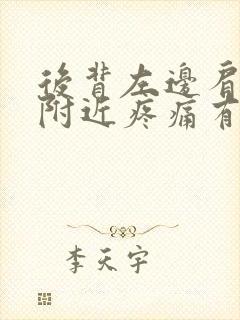 後背左邊肩
附近疼痛有
李天宇